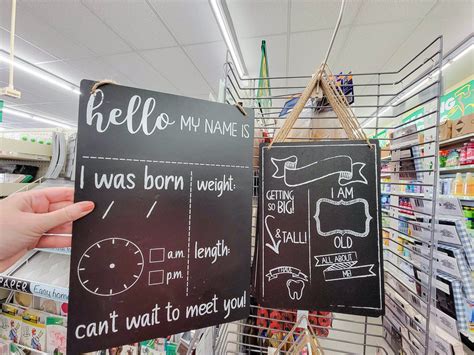 hello MY NAME IS
I was born
weight:
/ /
a.m.
p.m.
length:
can't wait to meet you!
GETTING
SO BIG!
& TALL!
I AM
OLD
ALL ABOUT
ME!